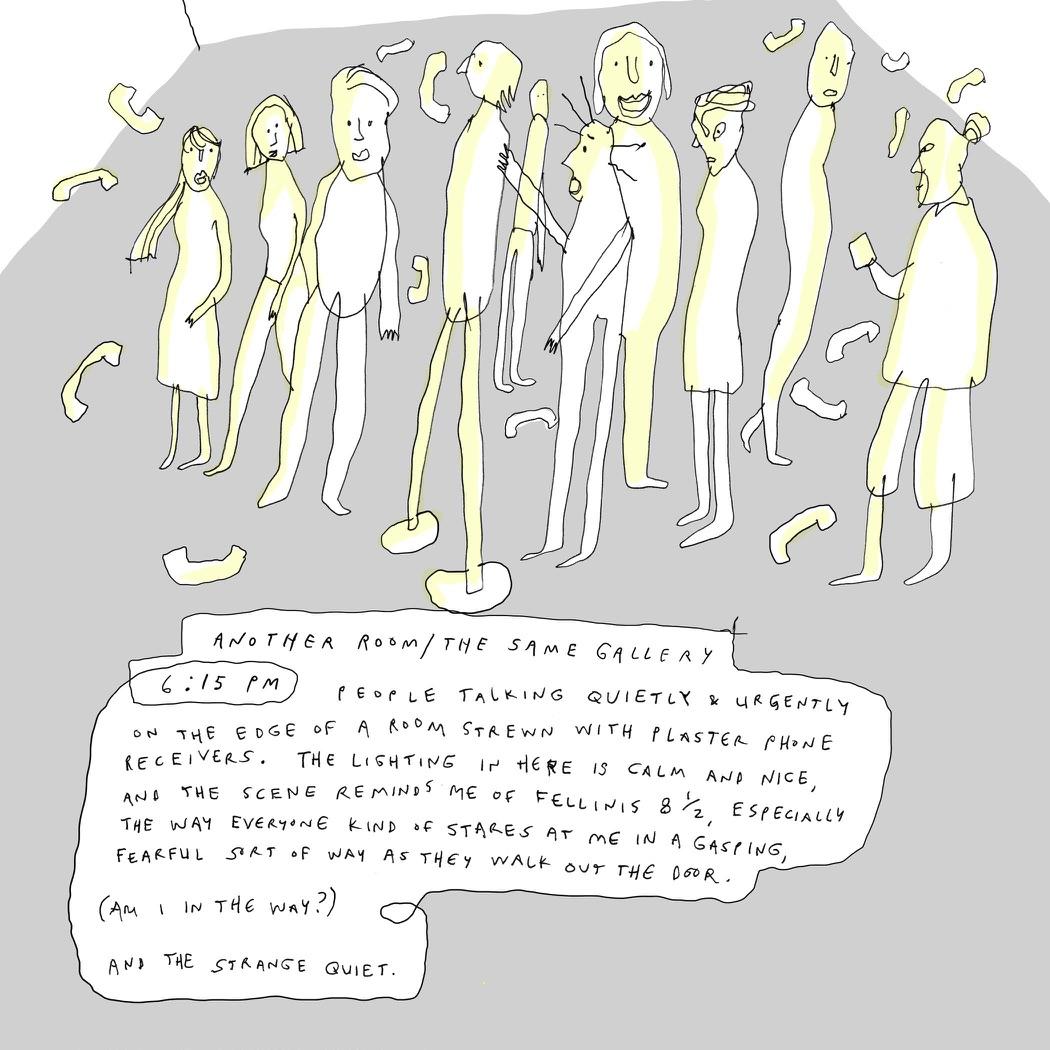 ANOTHER ROOM/THE SAME GALLERY
6:15 PM PEOPLE TALKING QUIETLY & URGENTLY
ON THE EDGE OF A ROOM STREWN WITH PLASTER PHONE
RECEIVERS. THE LIGHTING IN HERE IS CALM AND NICE,
AND THE SCENE REMINDS ME OF FELLINIS 8 1/2, ESPECIALLY
THE WAY EVERYONE KIND OF STARES AT ME IN A GASPING,
FEARFUL SORT OF WAY AS THEY WALK OUT THE DOOR.
(AM I IN THE WAY?)
AND THE STRANGE QUIET.